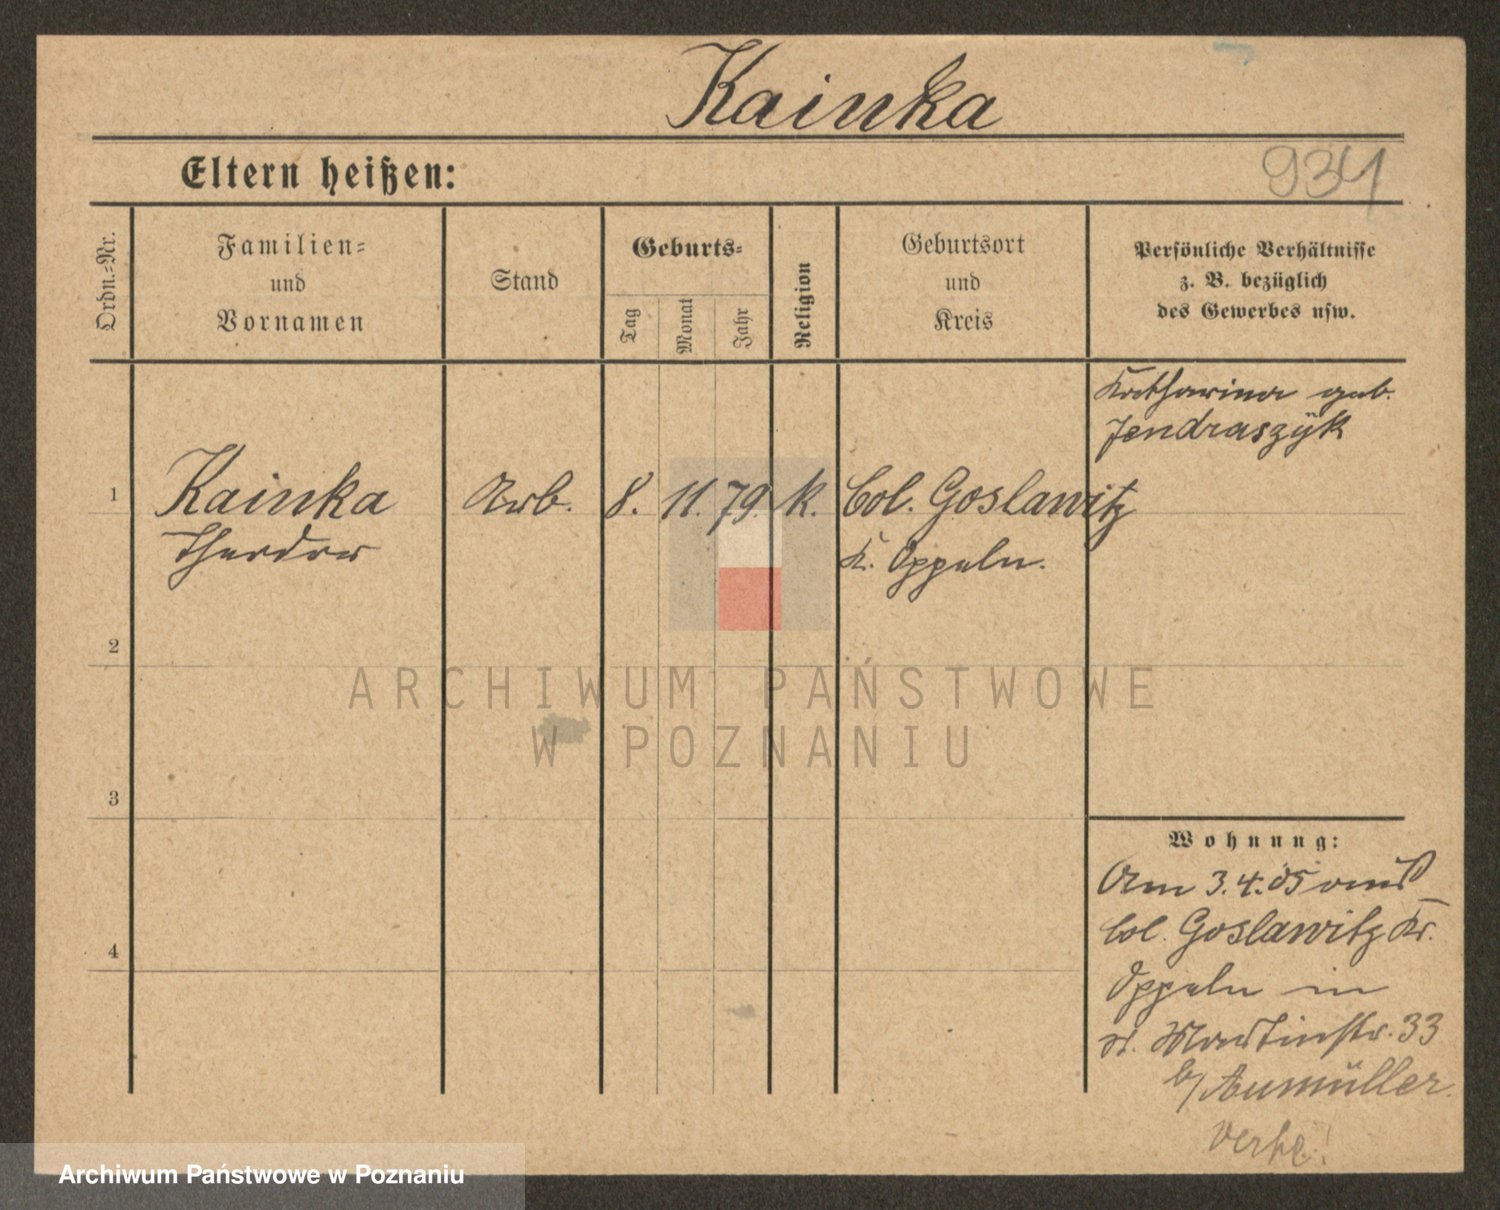 Kainka
Eltern heißen:
934
Ordn.=Nr.
Familien=
und
Vornamen
Stand
Geburts=
Tag
Monat
Jahr
Religion
Geburtsort
und
Kreis
Persönliche Verhältnisse
z. B. bezüglich
des Gewerbes usw.
Katharina geb.
Jendraszÿk
1
Kainka
Theodor
Arb.
8.
11.
79.
k.
Col. Goslawitz
K. Oppeln.
2
ARCHIWUM PAŃSTWOWE
W POZNANIU
3
Wohnung:
Am 3.4.05 aus
Col. Goslawitz Kr.
4
Oppeln in
St. Martinstr. 33
b/ Aumüller.
Archiwum Państwowe w Poznaniu